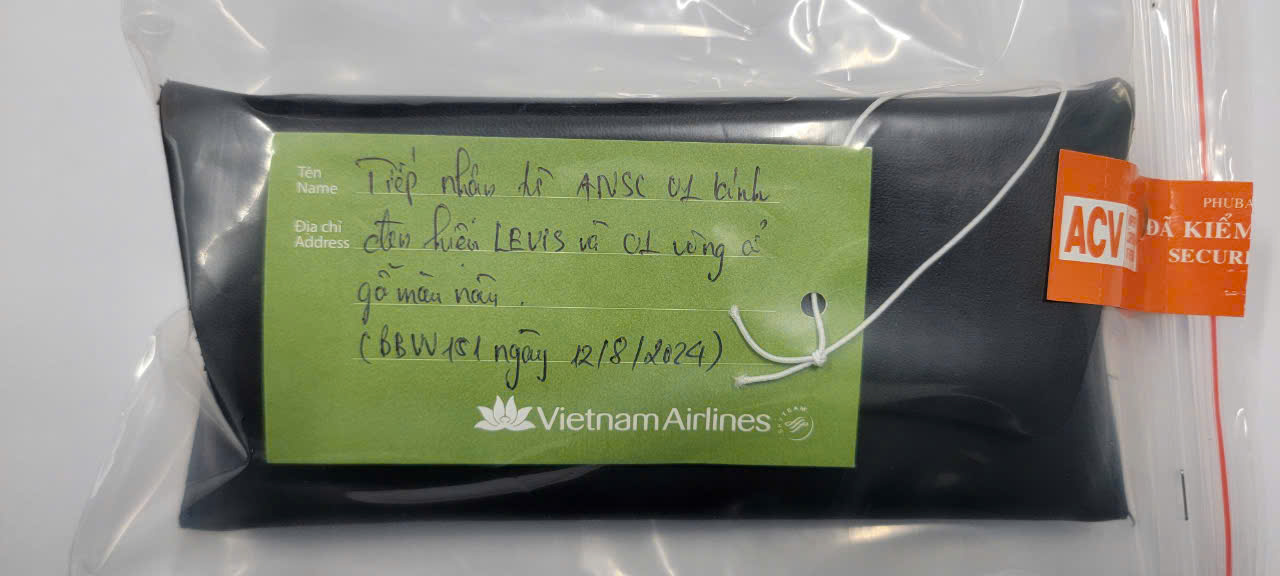 Tên
Name
Tiếp nhận từ ANSC 01 kính
Địa chỉ
Address
đen hiệu LEVIS và 01 vòng cổ
gỗ màu nâu.
(BBW151 ngày 12/8/2024)
Vietnam Airlines
SKYTEAM
ACV
PHUBA
ĐÃ KIỂM
SECURI